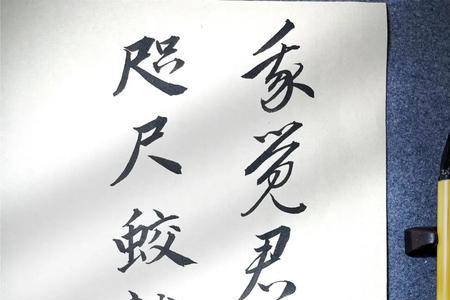 我觉君
咫尺蛟